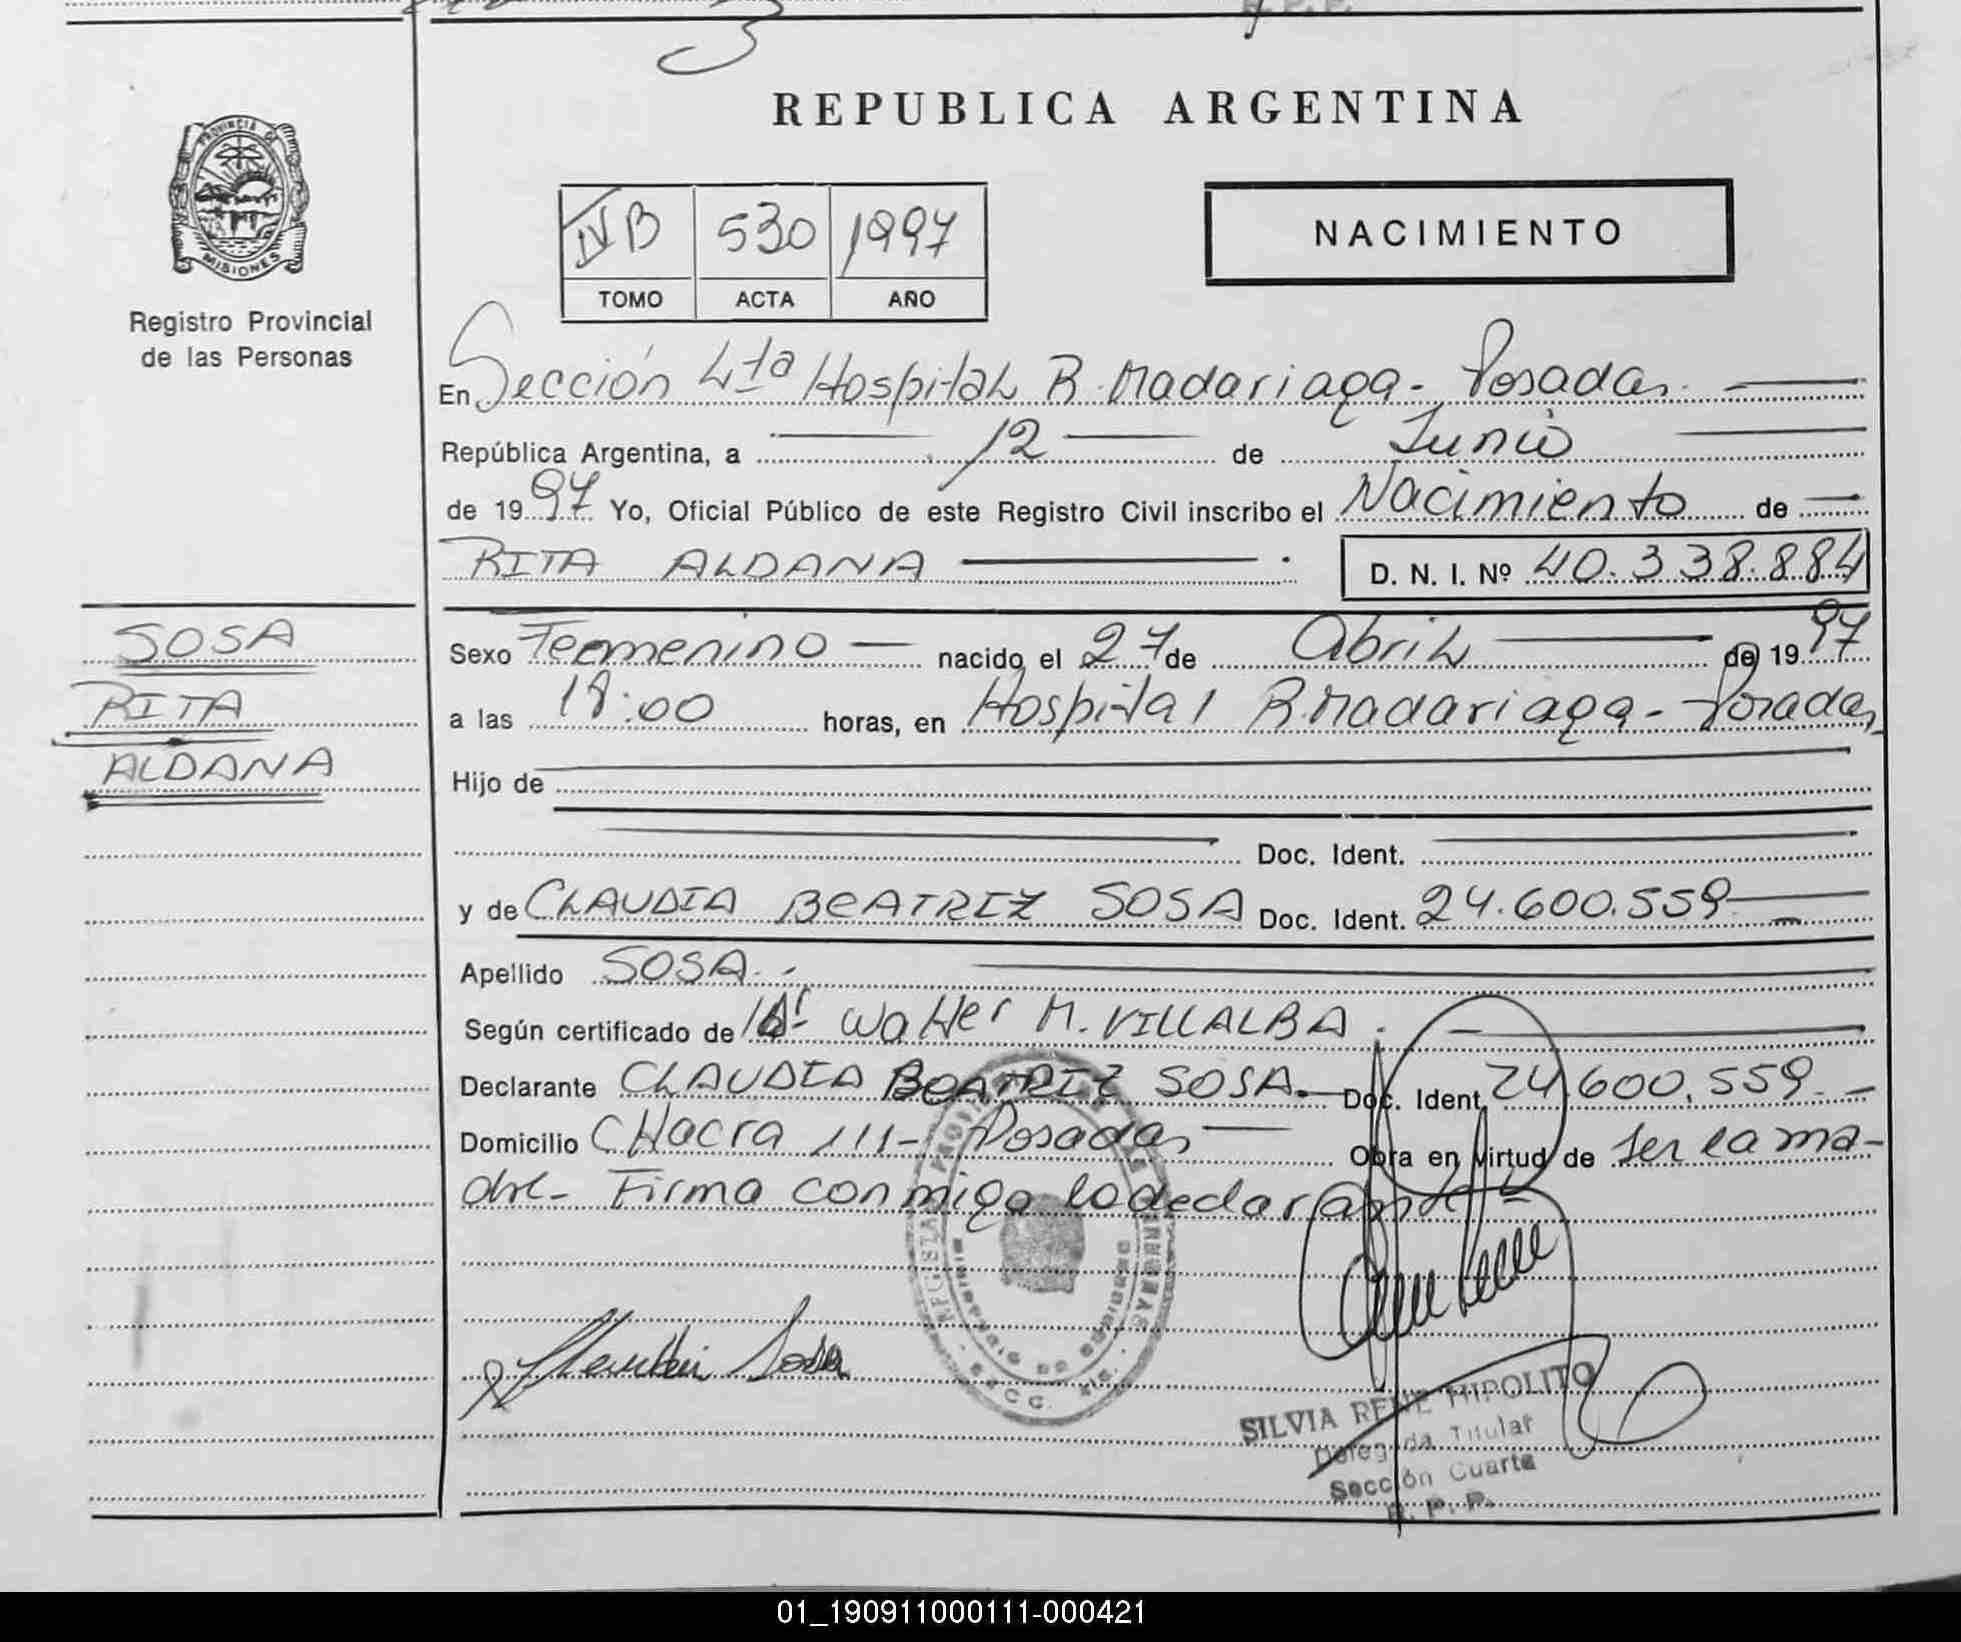 REPUBLICA ARGENTINA
PROVINCIA DE
MISIONES
Registro Provincial
de las Personas
IV B 530 1997
TOMO ACTA AÑO
NACIMIENTO
En Sección 4ta Hospital R. Madariaga - Posadas.
República Argentina, a 12 de Junio
de 1997 Yo, Oficial Público de este Registro Civil inscribo el Nacimiento de
RITA ALDANA
D. N. I. Nº 40.338.884
SOSA
RITA
ALDANA
Sexo Femenino nacido el 27 de Abril de 1997
a las 18:00 horas, en Hospital R. Madariaga - Posadas
Hijo de
Doc. Ident.
y de CLAUDIA BEATRIZ SOSA Doc. Ident. 24.600.559
Apellido SOSA.-
Según certificado de Dr. Walter M. VILLALBA.
Declarante CLAUDIA BEATRIZ SOSA.- Doc. Ident. 24.600.559.-
Domicilio CHacra 111- Posadas Obra en virtud de ser la ma-
dre- Firma conmigo la declarante-
Claudia Sosa
SILVIA RENE HIPOLITO
Delegada Titular
Sección Cuarta
R. P. P.
01_190911000111-000421